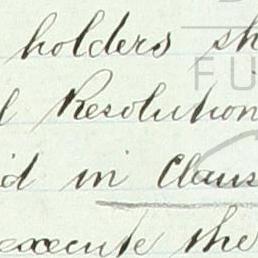 holders sh
l Resolution
id in Claus
execute the